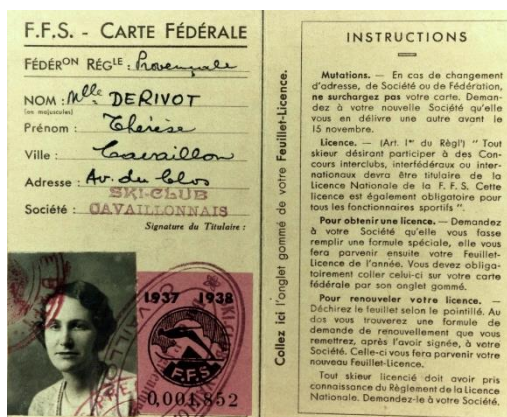 F.F.S. - CARTE FÉDÉRALE
FÉDÉRON RÉGLE : Provençale
NOM : Mlle DERIVOT
(en majuscules)
Prénom : Thérèse
Ville : Cavaillon
Adresse : Av. du Clos
SKI-CLUB
Société : CAVAILLONNAIS
Signature du Titulaire :
1937 1938
F.F.S.
0,001,852
Collez ici l'onglet gommé de votre Feuillet-Licence.
INSTRUCTIONS
Mutations. — En cas de changement
d'adresse, de Société ou de Fédération,
ne surchargez pas votre carte. Deman-
dez à votre nouvelle Société qu'elle
vous en délivre une autre avant le
15 novembre.
Licence. — (Art. 1er du Règl) " Tout
skieur désirant participer à des Con-
cours interclubs, interfédéraux ou inter-
nationaux devra être titulaire de la
Licence Nationale de la F. F. S. Cette
licence est également obligatoire pour
tous les fonctionnaires sportifs ".
Pour obtenir une licence. — Demandez
à votre Société qu'elle vous fasse
remplir une formule spéciale, elle vous
fera parvenir ensuite votre Feuillet-
Licence de l'année. Vous devez obliga-
toirement coller celui-ci sur votre carte
fédérale par son onglet gommé.
Pour renouveler votre licence. —
Déchirez le feuillet selon le pointillé. Au
dos vous trouverez une formule de
demande de renouvellement que vous
remettrez, après l'avoir signée, à votre
Société. Celle-ci vous fera parvenir votre
nouveau Feuillet-Licence.
Tout skieur licencié doit avoir pris
connaissance du Règlement de la Licence
Nationale. Demandez-le à votre Société.